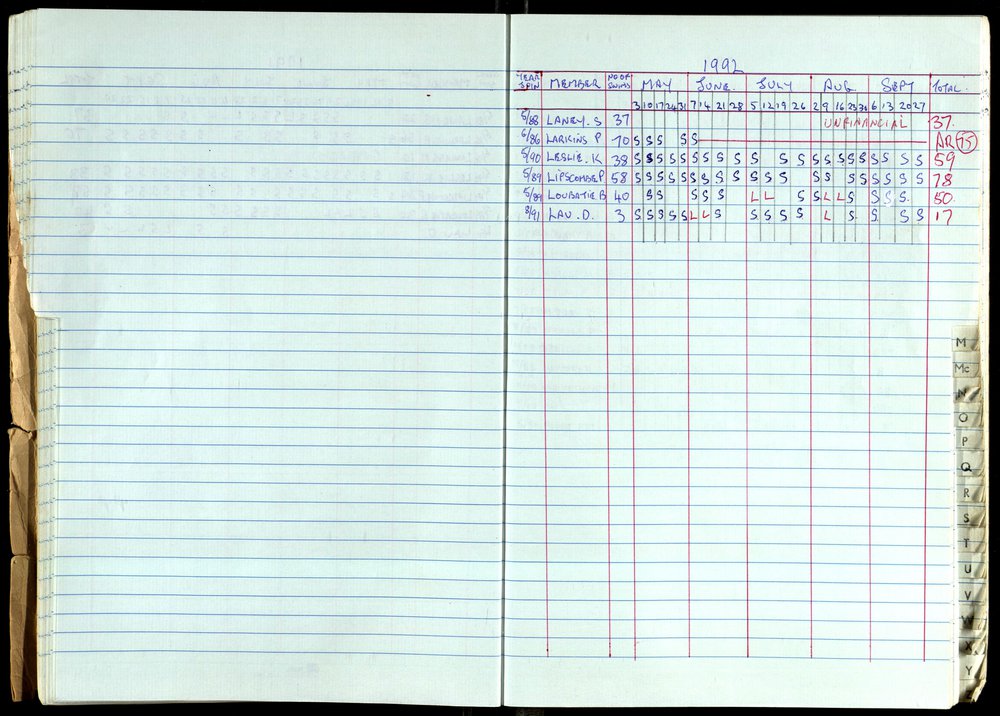 1992
YEAR JOIN MEMBER NO OF SWIMS MAY JUNE JULY AUG SEPT TOTAL
3 10 17 24 31 7 14 21 28 5 12 19 26 2 9 16 23 30 6 13 20 27
5/88 LANEY. S 37 UNFINANCIAL 37.
6/86 LARKINS P 70 S S S S S AR 75
5/90 LESLIE. K 38 S S S S S S S S S S S S S S S S S S S S S 59
5/89 LIPSCOMBE P 58 S S S S S S S S S S S S S S S S S S S S 78
5/89 LOUBATIE B 40 S S S S S L L S S L L S S S S. 50.
8/91 LAU. D. 3 S S S S S L L S S S S S L S. S S S 17
M
Mc
N
O
P
Q
R
S
T
U
V
W
X
Y